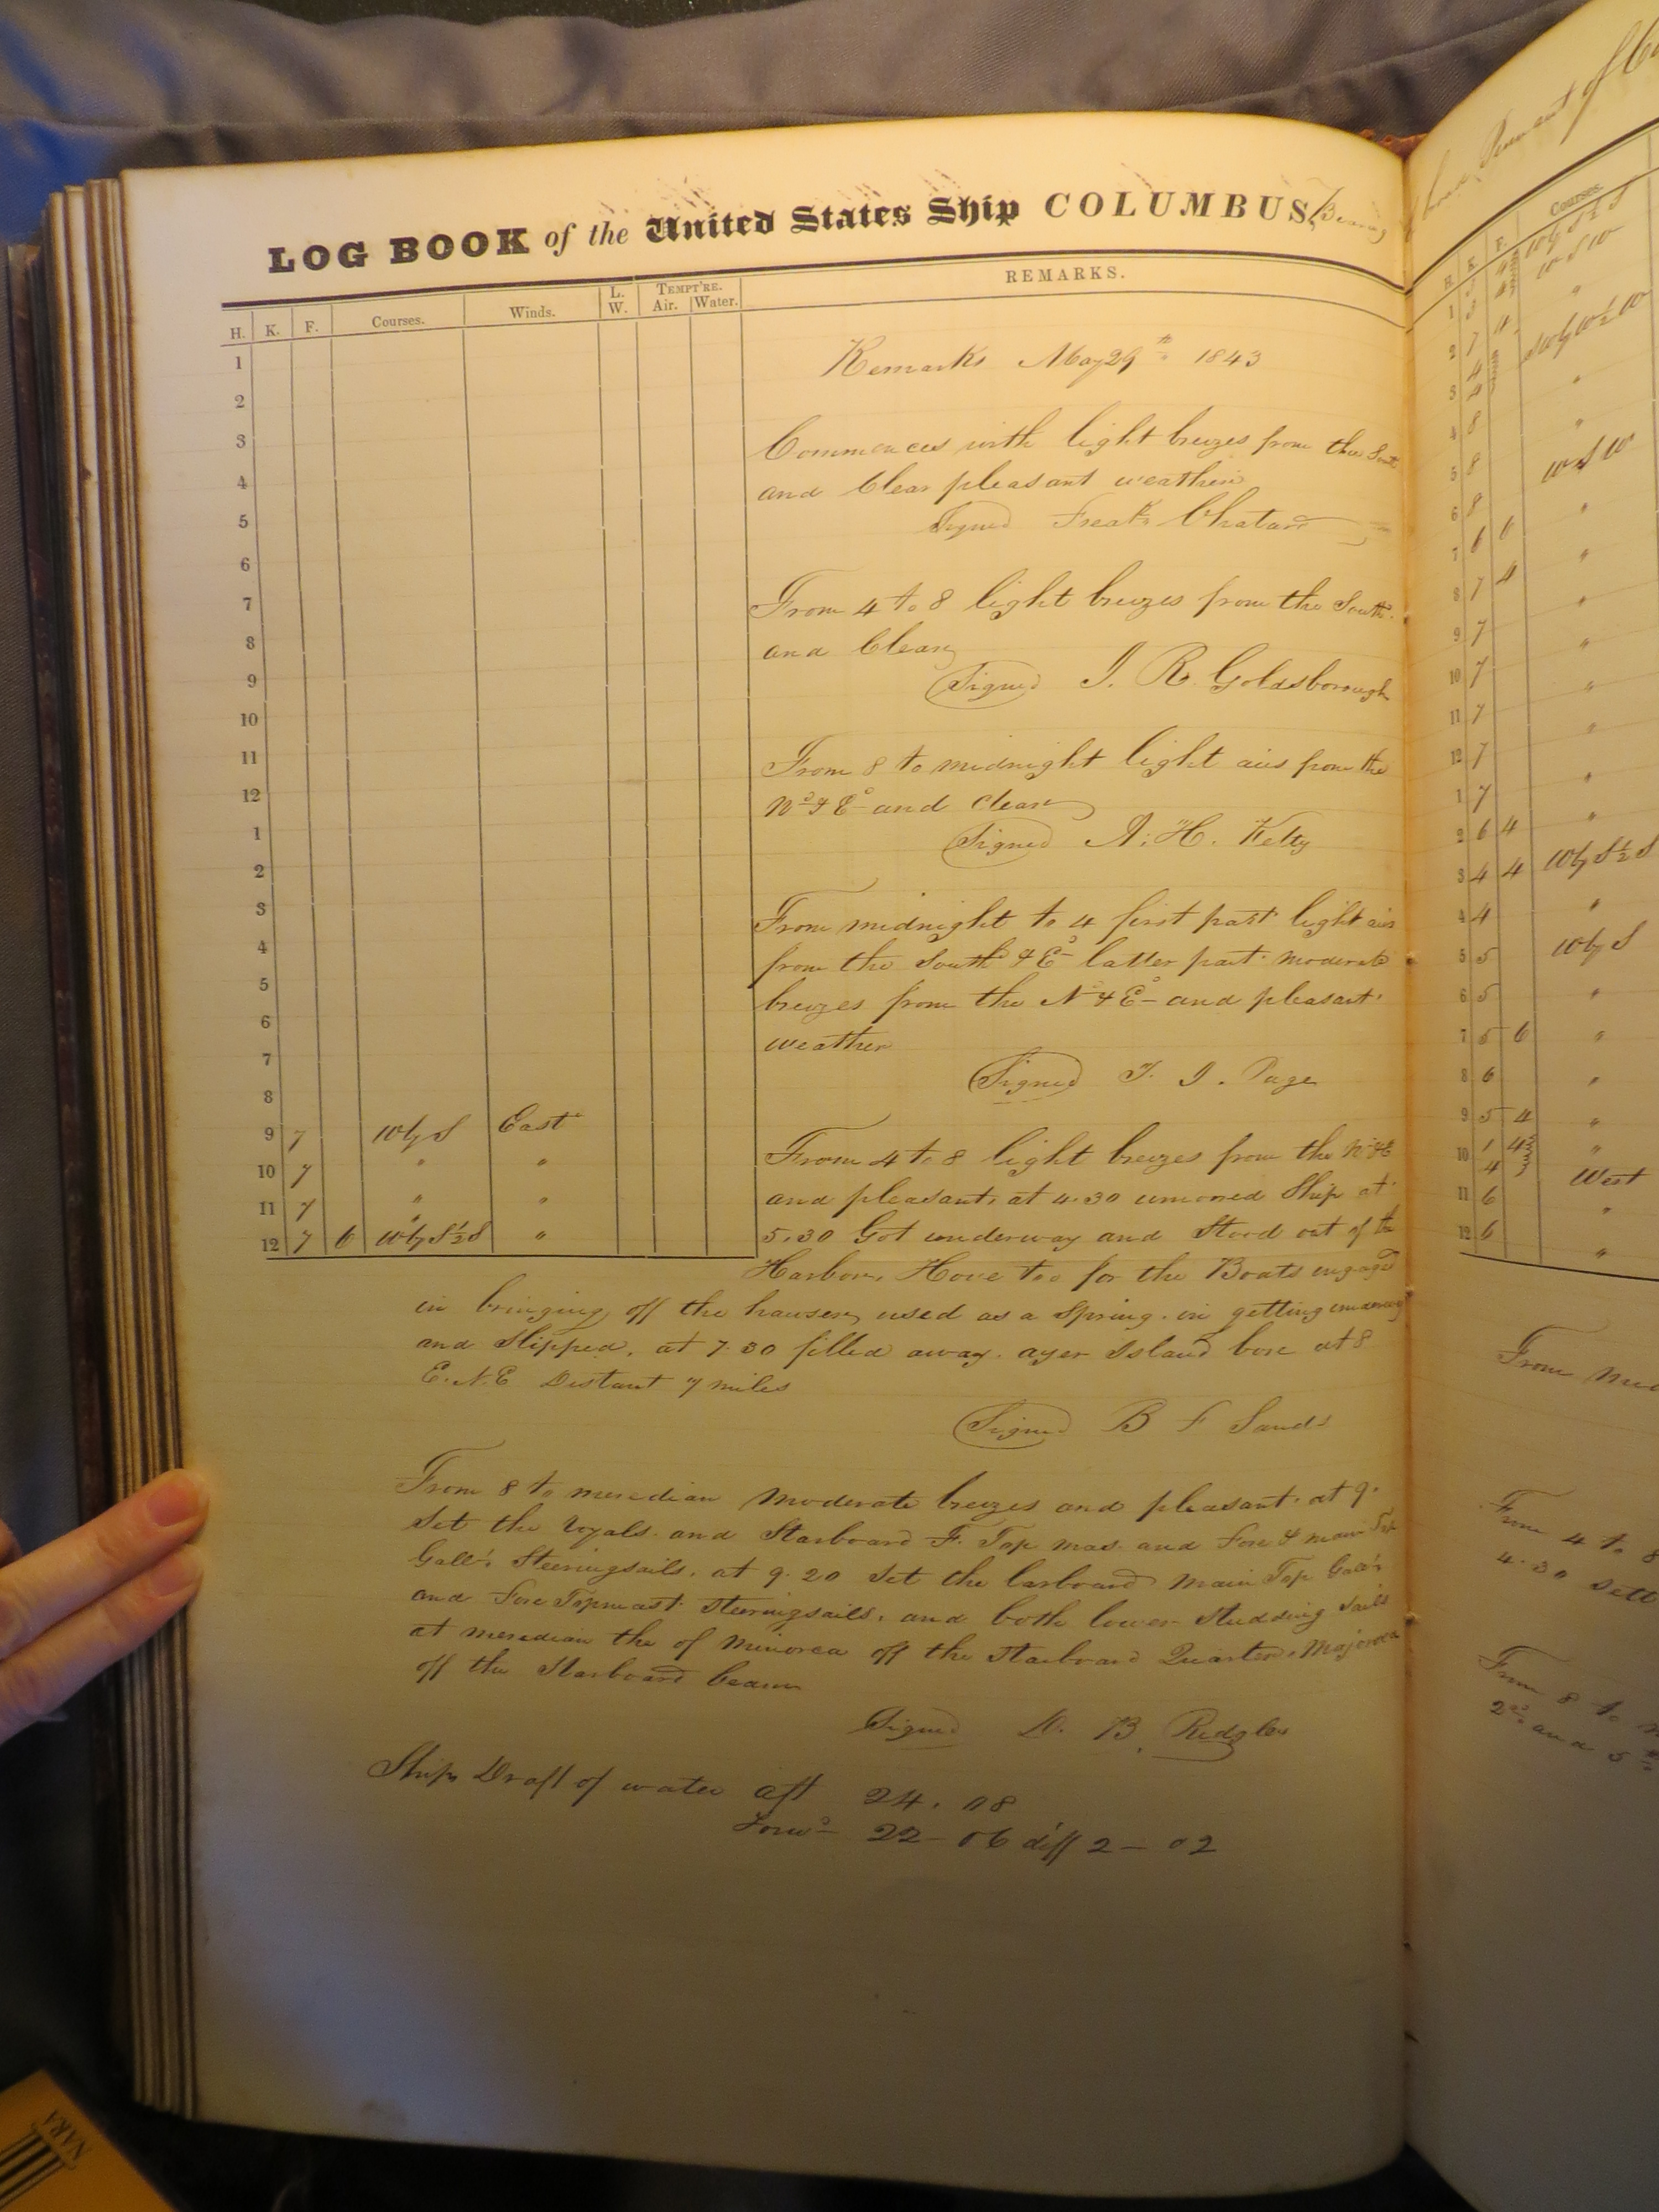 LOG BOOK of the United States Ship COLUMBUS, Bearing
H. K. F. Courses. Winds. L. W. TEMPT'RE. Air. Water. REMARKS.
Remarks May 29th 1843
1
2
3
Commences with light breezes from the South
4
and Clear pleasant weather
5
Signed Fredk Chatard
6
7
From 4 to 8 light breezes from the South
8
and Clear
9
Signed J. R. Goldsborough
10
11
From 8 to midnight light airs from the
12
Nd & Ed and clear
1
Signed A. H. Kelty
2
3
From midnight to 4 first part light airs
4
from the South & Ed latter part moderate
5
breezes from the N & Ed and pleasant
6
weather
7
Signed T. J. Page
8
9 7 W by S East
From 4 to 8 light breezes from the N & E
10 7 " "
and pleasant, at 4.30 unmoored Ship at
11 7 " "
12 7 6 W by S ½ S "
5.30 Got underway and Stood out of the
Harbor, Hove too for the Boats engaged
in bringing off the hawser, used as a Spring in getting underway
and Slipped, at 7.30 filled away. ayer Island bore at 8
E.N.E Distant 7 miles
Signed B F Sands
From 8 to meredian moderate breezes and pleasant. at 9.
Set the royals and Starboard F. Top mas and Fore & main Top
Gall't Steeringsails, at 9.20 Set the larboard main Top Gall't
and Fore Topmast Steeringsails, and both lower Studding Sails
at meredian the of Minorca off the Starboard Quarter, Majorca
off the Starboard beam
Signed D. B. Ridgley
Ships Draft of water aft 24.08
Forwd 22-06 diff 2-02
Courses.
H. K. F.
1
2
3
4
5
6
7
8
9
10
11
12
W by S ½ S
W S W
SW by W ½ W
W S W
W by S ½ S
W by S
West
From
From 4 to 8
4.30
From 8 to
2nd and 5th
NARA